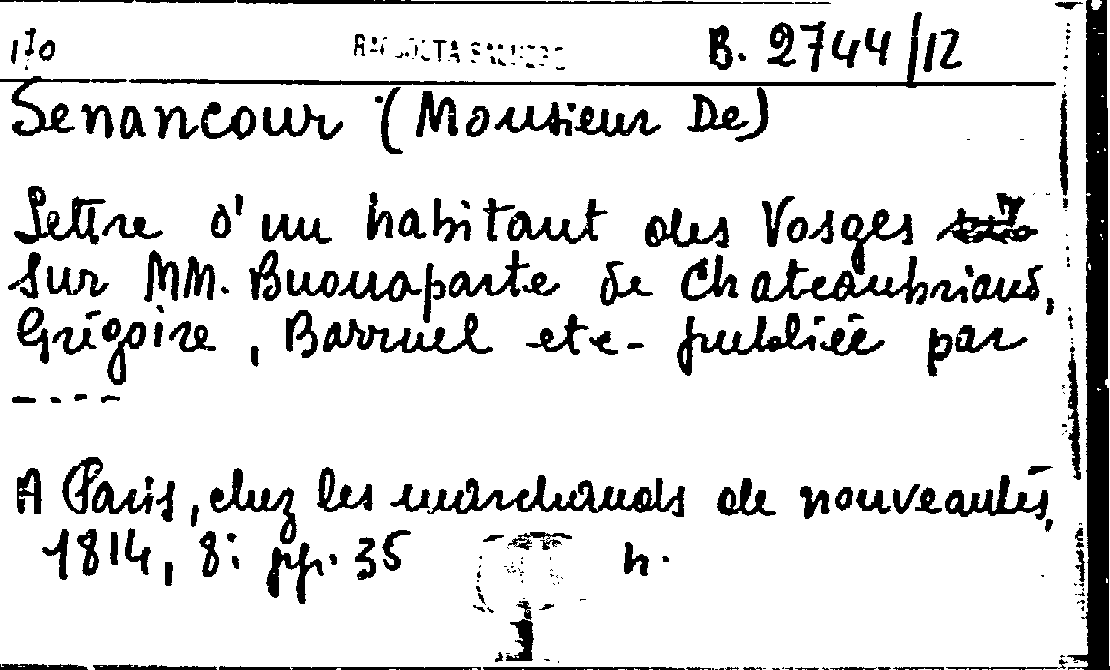 170 RACCOLTA B. 2744/12
Senancour (Monsieur De)
Lettre d'un habitant des Vosges
sur MM. Buonaparte de Chateaubriand,
Grégoire, Barruel etc- publiée par
-----
A Paris, chez les marchands de nouveautés,
1814, 8: pp. 35 h.